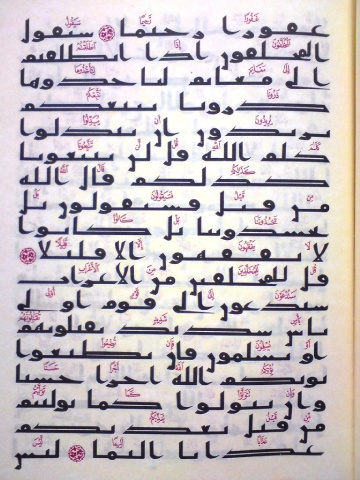 غفورا رحيما ۝ سيقول
المخلفون اذا انطلقتم
الى مغانم لتاخذوها
ذرونا نتبعكم
يريدون ان يبدلوا
كلم الله قل لن تتبعونا
كذلكم قال الله
من قبل فسيقولون بل
تحسدوننا بل كانوا
لا يفقهون الا قليلا ۝
قل للمخلفين من الاعراب
ستدعون الى قوم اولى
باس شديد تقتلونهم
او يسلمون فان تطيعوا
يوتكم الله اجرا حسنا
وان تتولوا كما توليتم
من قبل يعذبكم
عذابا اليما ۝ ليس